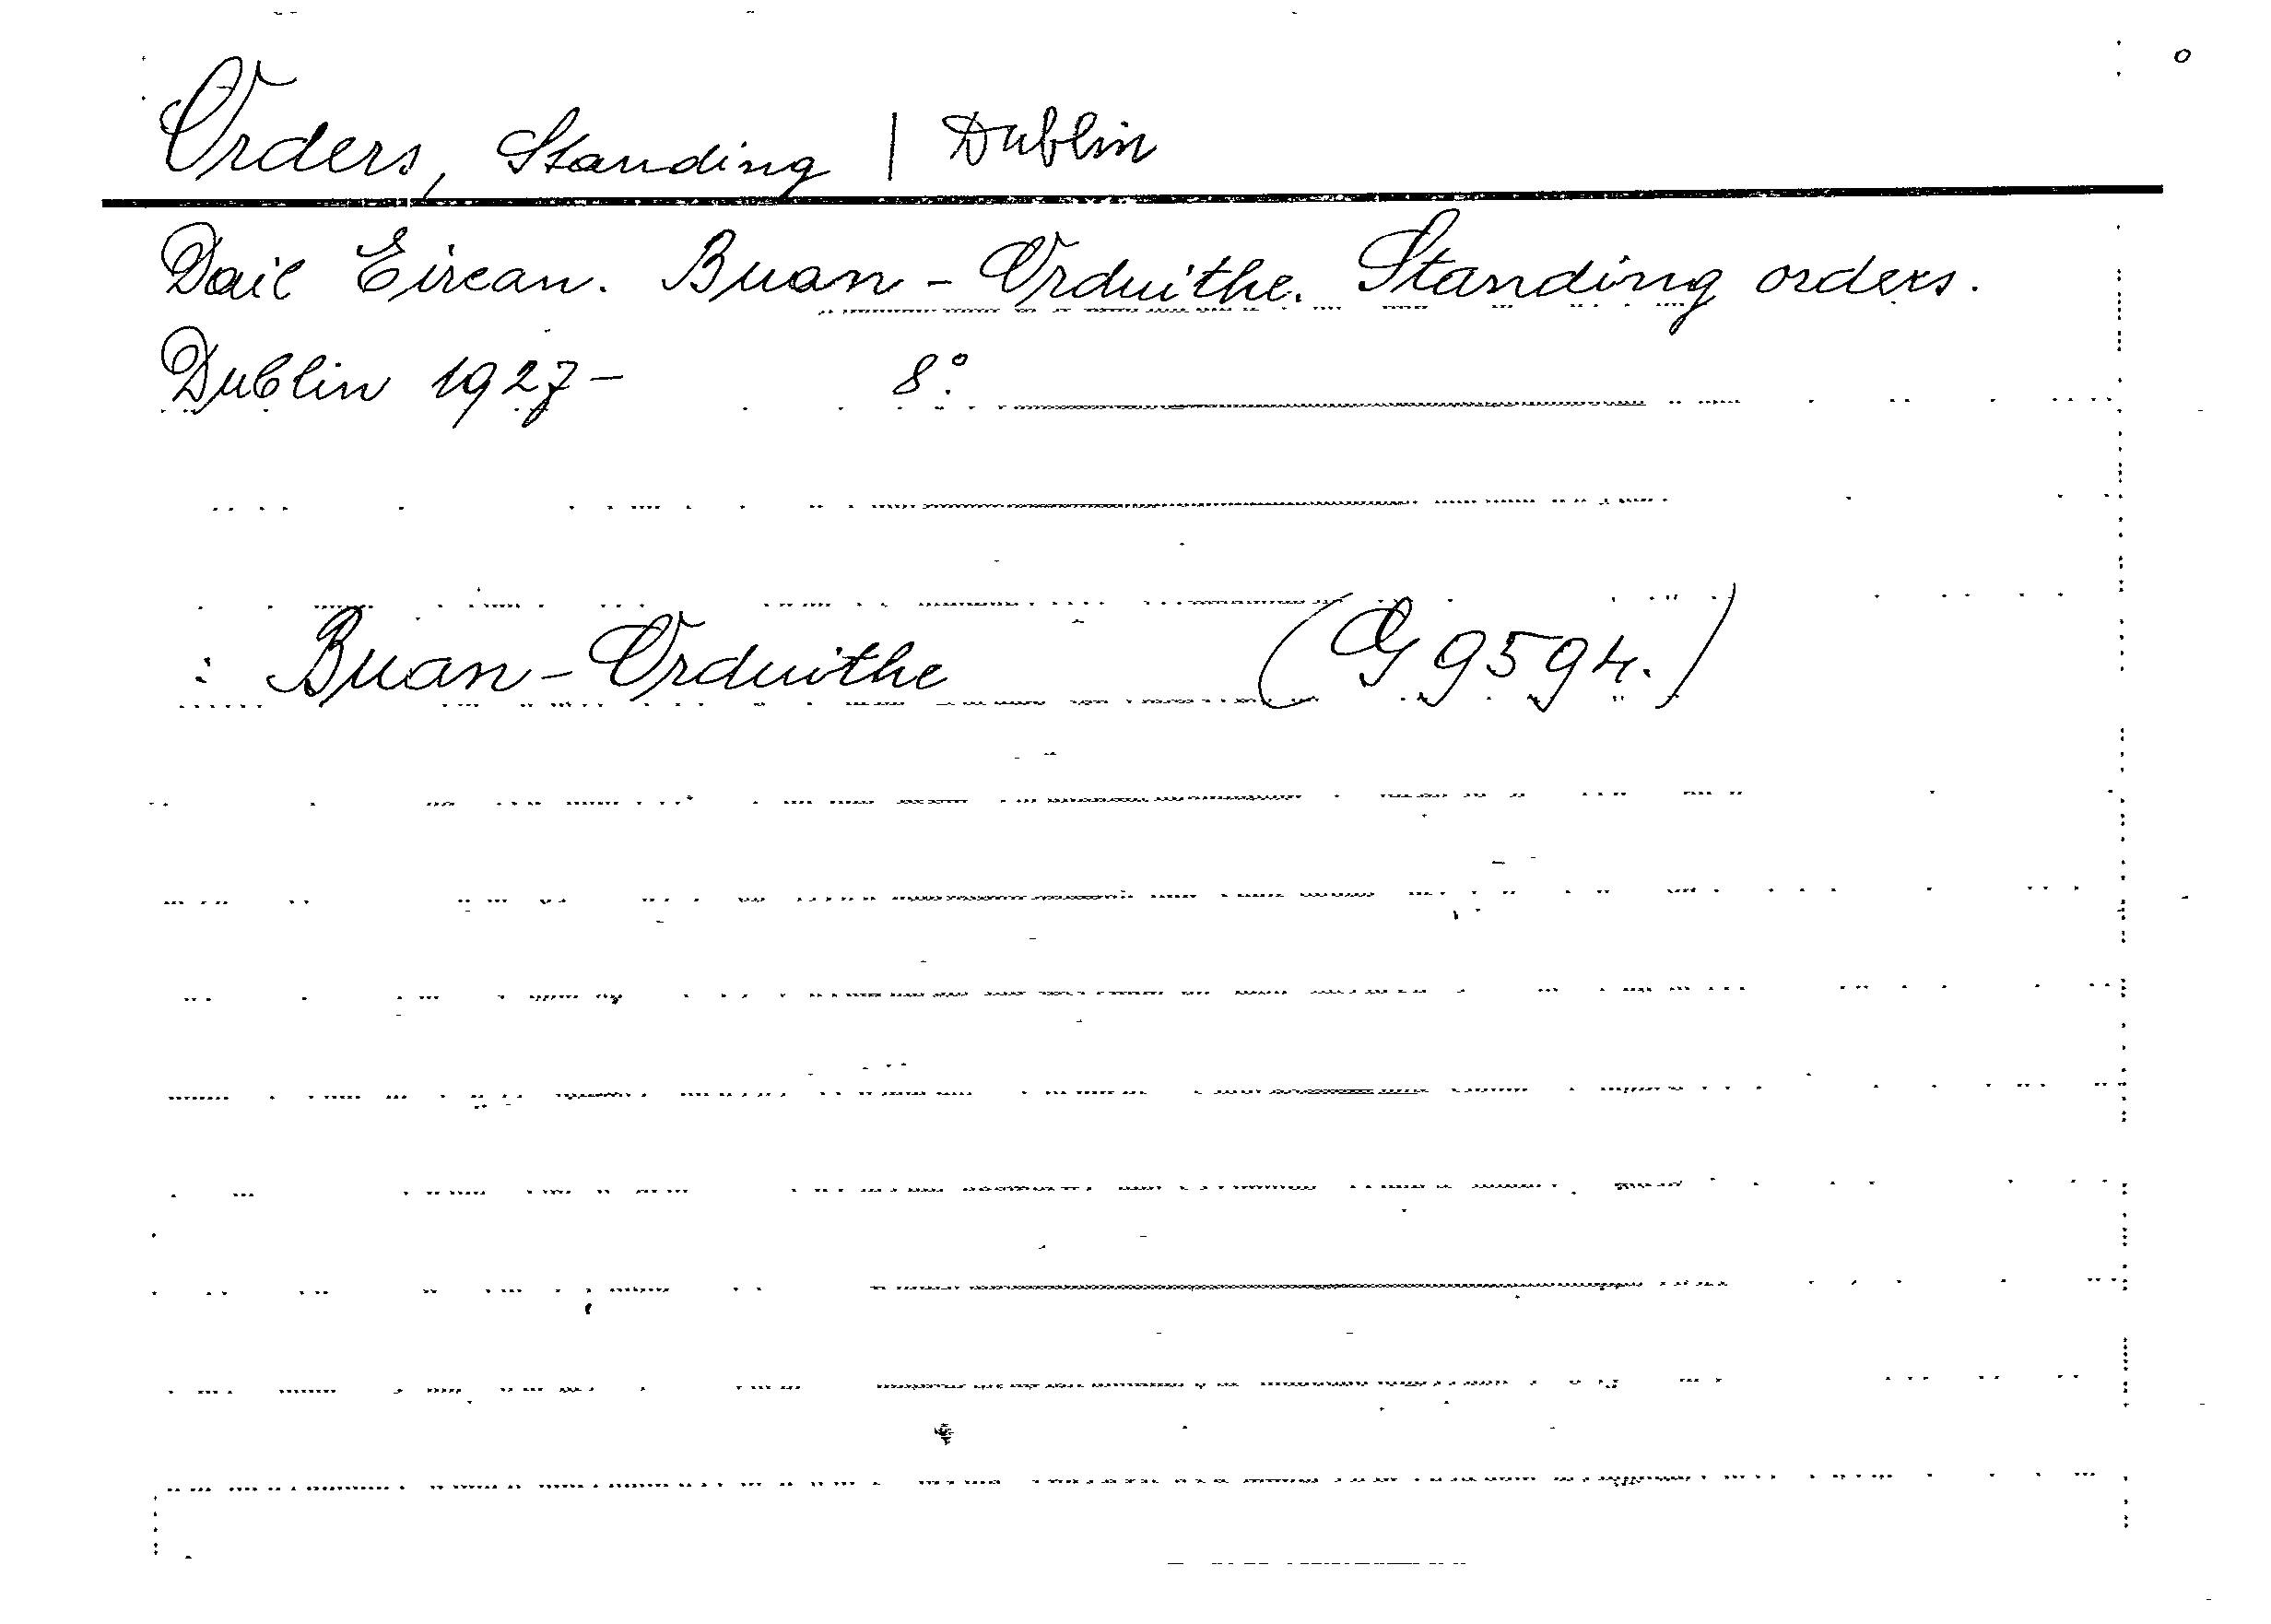 Orders, Standing | Dublin
Dail Eirean. Buan-Orduithe. Standing orders.
Dublin 1927- 8°.
: Buan-Orduithe (G 9594.)